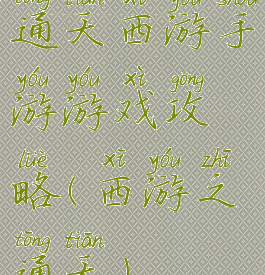 tōng tiān xī yóu shǒu
通天西游手
yóu yóu xì gōng
游游戏攻
lüè xī yóu zhī
略(西游之
tōng tiān
通天)